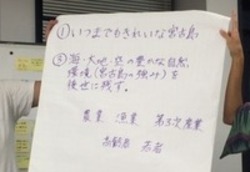 ①いつまでもきれいな宮古島
②海・大地・空の豊かな自然
環境(宮古島の強み)を
後世に残す。
農業 漁業 第3次産業
高齢者 若者